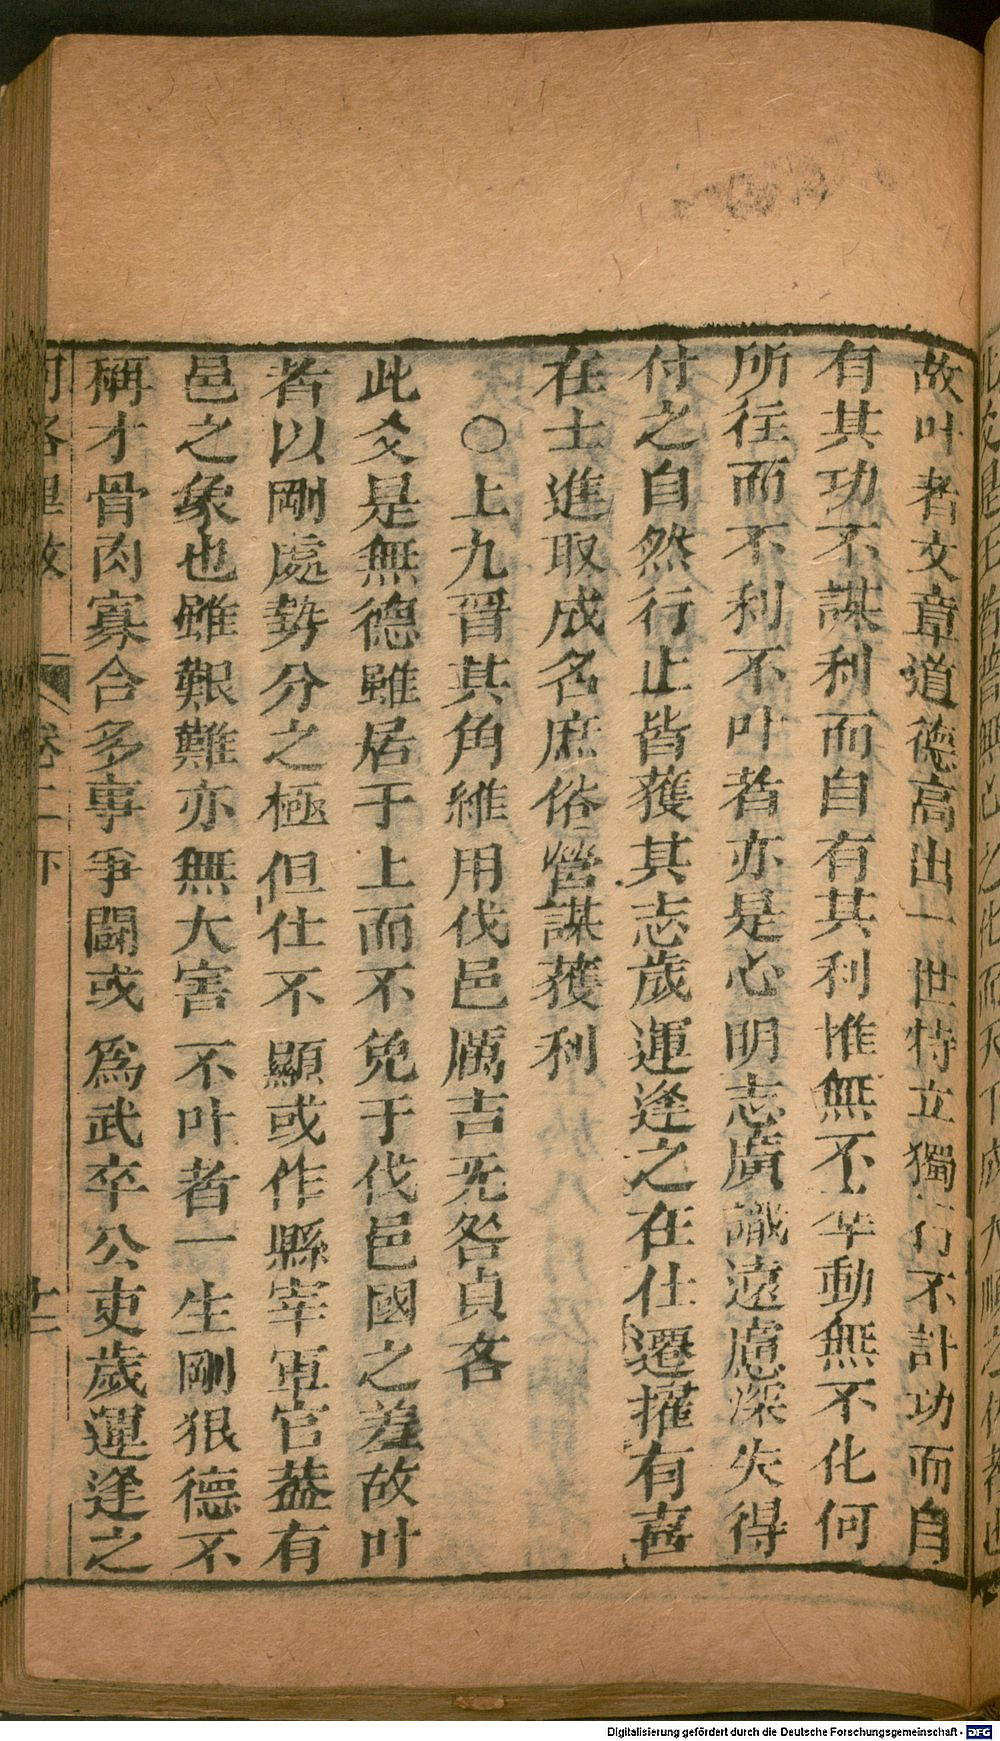 故叶者文章道德高出一世特立獨行不計功而自
有其功不謀利而自有其利惟無不孚動無不化何
所往而不利不叶者亦是心明志廣識遠慮深失得
付之自然行止皆獲其志歲運逢之在仕遷擢有喜
在士進取成名庶俗營謀獲利
○上九晋其角維用伐邑厲吉无咎貞吝
此爻是無德雖居于上而不免于伐邑國之差故叶
者以剛處勢分之極但仕不顯或作縣宰軍官葢有
邑之象也雖艱難亦無大害不叶者一生剛狠德不
稱才骨肉寡合多事爭鬭或爲武卒公吏歲運逢之
卷二下
廿二
Digitalisierung gefördert durch die Deutsche Forschungsgemeinschaft - DFG